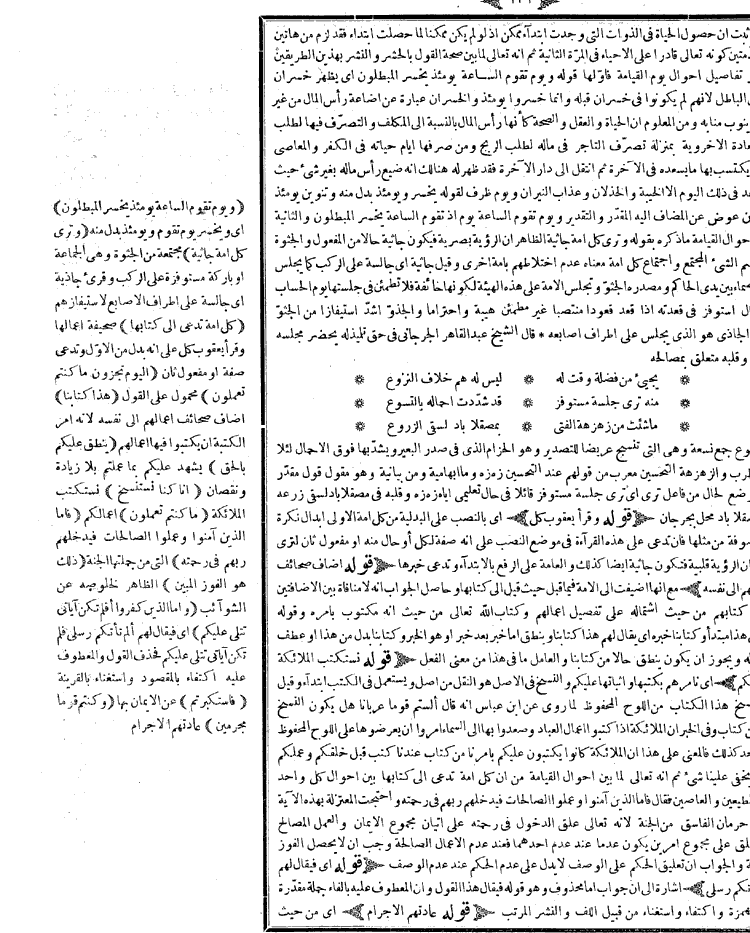 ثبت ان حصول الحياة فى الذوات التى وجدت ابتدآء ممكن اذ لو لم يكن ممكنا لما حصلت ابتداء فقد لزم من هاتين
متين كونه تعالى قادرا على الاحياء فى المرّة الثانية ثم انه تعالى لما بين صحة القول بالحشر والنشر بهذين الطريقين
تفاصيل احوال يوم القيامة فاوّلها قوله ويوم تقوم الساعة يومئذ يخسر المبطلون اى يظهر خسران
الباطل لانهم لم يكونوا فى خسران قبله وانما خسروا يومئذ والخسران عبارة عن اضاعة رأس المال من غير
ينوب منابه ومن المعلوم ان الحياة والعقل والصحة كأنها رأس المال بالنسبة الى المكلف والتصرّف فيها لطلب
عادة الاخروية بمنزلة تصرّف التاجر فى ماله لطلب الربح ومن صرفها ايام حياته فى الكفر والمعاصى
يكتسب بها ما يسعده فى الآخرة ثم انتقل الى دار الآخرة فقد ظهر له هنالك انه ضيع رأس ماله بغير شئ حيث
جد فى ذلك اليوم الا الخيبة والخذلان وعذاب النيران ويوم ظرف لقوله يخسر ويومئذ بدل منه وتنوين يومئذ
ن عوض عن المضاف اليه المقدّر والتقدير ويوم تقوم الساعة يوم اذ تقوم الساعة يخسر المبطلون والثانية
حوال القيامة ما ذكره بقوله وترى كل امة جاثية الظاهر ان الرؤية بصرية فيكون جاثية حالا من المفعول والجثوة
م الشئ المجتمع واجتماع كل امة معناه عدم اختلاطهم بامة اخرى وقيل جاثية اى جالسة على الركب كما يجلس
صماء بين يدى الحاكم ومصدره الجثوّ وتجلس الامة على هذه الهيئة لكونها خائفة فلا تطمئن فى جلستها يوم الحساب
ل استوفز فى قعدته اذا قعد قعودا منتصبا غير مطمئن هيبة واحتراما والجذوّ اشدّ استيفازا من الجثوّ
الجاذى هو الذى يجلس على اطراف اصابعه * قال الشيخ عبدالقاهر الجرجانى فى حق تليذله يحضر مجلسه
وقلبه متعلق بمصالحه
يجيئ من فضلة وقت له * ليس له هم خلاف النزوع
منه ترى جلسة مستوفز * قد شدّدت احماله بالنسوع
ما شئت من زهزهة الفتى * بمصقلا باد لستى الزروع
وع جمع نسعة وهى التى تنسج عريضا للتصدير وهو الحزام الذى فى صدر البعير ويشدّ بها فوق الاحمال لئلا
طرب والزهزهة التحسين معرب من قولهم عند التحسين زه زه وما ابهامية ومن بيانية وهو مقول قول مقدّر
وضع لحال من فاعل ترى اى ترى جلسة مستوفز قائلا فى حال تعليمى اياه زه زه وقلبه فى مصقلا باد لستى زرعه
مقلا باد محل بجرجان قوله وقرأ يعقوب كل اى بالنصب على البدلية من كل امة الاولى ابدال نكرة
سوفة من مثلها فان تدعى على هذه القرآءة فى موضع النصب على انه صفة لكل او حال منه او مفعول ثان لترى
ان الرؤية قلبية فتكون جاثية ايضا كذلك والعامة على الرفع بالابتدآء وتدعى خبرها قوله اضاف صحائف
هم الى نفسه مع انها اضيفت الى الامة فيما قبل حيث قيل الى كتابها وحاصل الجواب انه لا منافاة بين الاضافتين
كتابهم من حيث اشتماله على تفصيل اعمالهم وكتاب الله تعالى من حيث انه مكتوب بامره وقوله
ى هذا مبتدأ وكتابنا خبره اى يقال لهم هذا كتابنا وينطق اما خبر بعد خبر او هو الخبر وكتابنا بدل من هذا او عطف
ه ويجوز ان يكون ينطق حالا من كتابنا والعامل ما فى هذا من معنى الفعل قوله نستكتب الملائكة
كم اى نامرهم بكتبها واثباتها عليكم والنسخ فى الاصل هو النقل من اصل ويستعمل فى الكتب ابتدآء وقيل
سخ هذا الكتاب من اللوح المحفوظ لما روى عن ابن عباس انه قال ألستم قوما عربا نا هل يكون النسخ
ن كتاب وفى الخبر ان الملائكة اذا كتبوا اعمال العباد وصعدوا بها الى السماء امروا ان يعرضوها على اللوح المحفوظ
جد كذلك فالمعنى على هذا ان الملائكة كانوا يكتبون عليكم بامرنا من كتاب عندنا كتب قبل خلقكم وعملكم
يخفى علينا شئ ثم انه تعالى لما بين احوال القيامة من ان كل امة تدعى الى كتابها بين احوال كل واحد
طيعين والعاصين فقال فاما الذين آمنوا وعملوا الصالحات فيدخلهم ربهم فى رحمته واحتجت المعتزلة بهذه الآية
حرمان الفاسق من الجنة لانه تعالى علق الدخول فى رحمته على اتيان مجموع الايمان والعمل الصالح
لق على مجموع امرين يكون عدما عند عدم احدهما فعند عدم الاعمال الصالحة وجب ان لا يحصل الفوز
ة والجواب ان تعليق الحكم على الوصف لا يدل على عدم الحكم عند عدم الوصف قوله اى فيقال لهم
تكم رسلى اشارة الى ان جواب اما محذوف وهو قوله فيقال هذا القول وان المعطوف عليه بالفاء جملة مقدّرة
همزة واكتفاء واستغناء من قبيل اللف والنشر المرتب قوله عادتهم الاجرام اى من حيث
(ويوم تقوم الساعة يومئذ يخسر المبطلون)
اى ويخسر يوم تقوم ويومئذ بدل منه (وترى
كل امة جاثية) مجتمعة من الجثوة وهى الجماعة
او باركة مستوفزة على الركب وقرئ جاذية
اى جالسة على اطراف الاصابع لاستيفازهم
(كل امة تدعى الى كتابها) صحيفة اعمالها
وقرأ يعقوب كل على انه بدل من الاوّل وتدعى
صفة او مفعول ثان (اليوم تجزون ما كنتم
تعملون) محمول على القول (هذا كتابنا)
اضاف صحائف اعمالهم الى نفسه لانه امر
الكتبة ان يكتبوا فيها اعمالهم (ينطق عليكم
بالحق) يشهد عليكم بما عملتم بلا زيادة
ونقصان (انا كنا نستنسخ) نستكتب
الملائكة (ما كنتم تعملون) اعمالكم (فاما
الذين آمنوا وعملوا الصالحات فيدخلهم
ربهم فى رحمته) التى من جملتها الجنة (ذلك
هو الفوز المبين) الظاهر لخلوصه عن
الشوآئب (واما الذين كفروا أفلم تكن آياتى
تتلى عليكم) اى فيقال لهم ألم تأتكم رسلى فلم
تكن آياتى تتلى عليكم فحذف القول والمعطوف
عليه اكتفاء بالمقصود واستغناء بالقرينة
(فاستكبرتم) عن الايمان بها (وكنتم قوما
مجرمين) عادتهم الاجرام